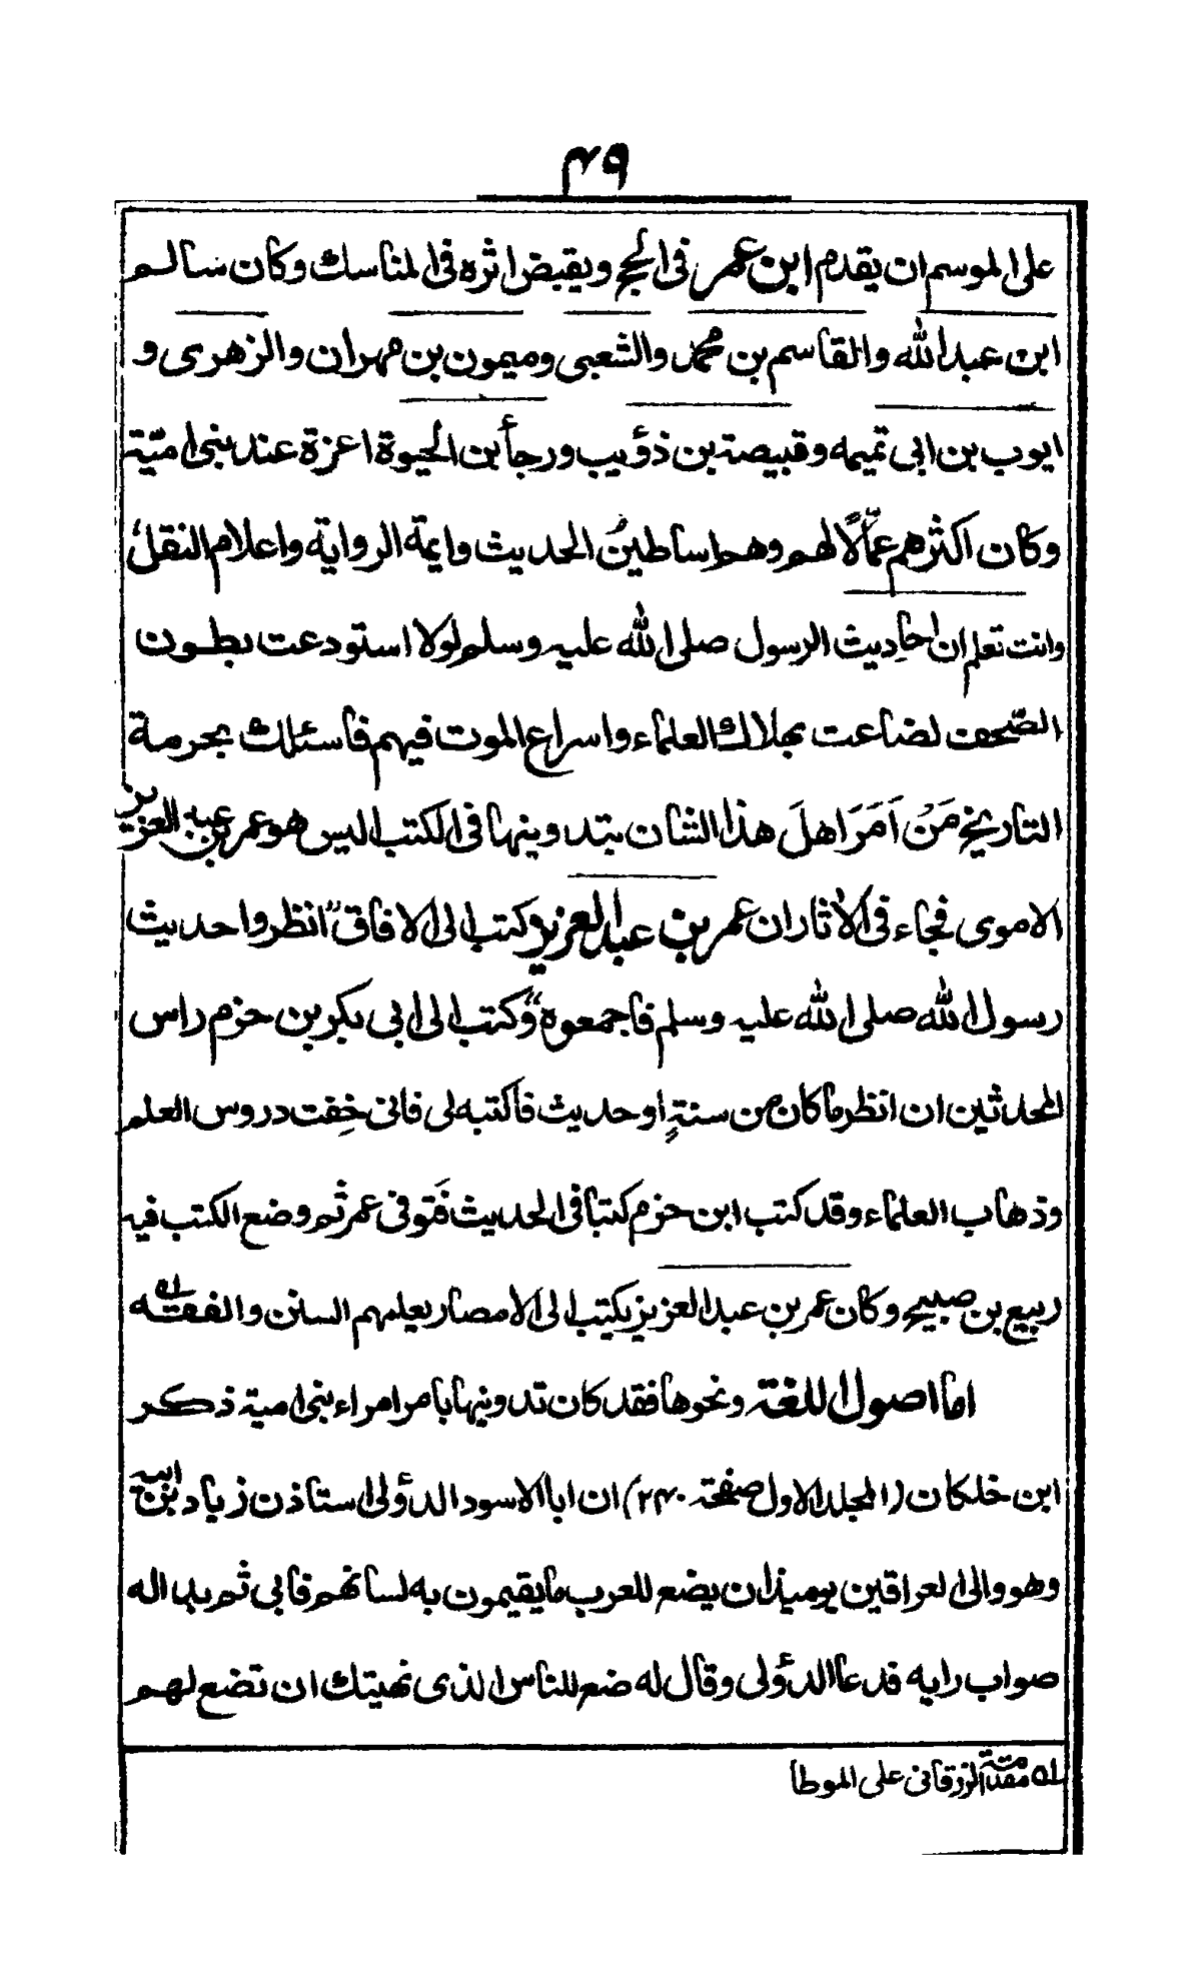 ۴۹
على الموسم ان يقدم ابن عمر فى الحج ويقبض اثره فى المناسك وكان سالم
ابن عبد الله والقاسم بن محمد والشعبى وميمون بن مهران والزهرى و
ايوب بن ابى تميمه وقبيصة بن ذؤيب ورجأ بن الحيوة اعزة عند بنى اميّة
وكان اكثرهم عمّالًا لهم وهم اساطينُ الحديث وايمة الرواية واعلام النقل،
وانت تعلم ان احاديث الرسول صلى الله عليه وسلم لولا استودعت بطون
الصّحف لضاعت بهلاك العلماء واسراع الموت فيهم فاسئلك بحرمة
التاريخ مَنْ اَمَرَ اهلَ هذا الشان بتدوينها فى الكتب اليس هو عمر بن عبد العزيز
الاموى فجاء فى الأثار ان عمر بن عبد العزيز كتب الى الافاق "انظروا حديث
رسول الله صلى الله عليه وسلم فاجمعوه" وكتب الى ابى بكر بن حزم راس
المحدثين ان انظر ما كان من سنةٍ او حديث فاكتبه لى فانى خِفت دروس العلم
وذهاب العلماء وقد كتب ابن حزم كتبا فى الحديث فَتوفى عمر ثم وضع الكتب فيه
ربيع بن صبيح وكان عمر بن عبد العزيز يكتب الى الامصار يعلمهم السنن والفقه ۵۱
اما اصول اللغة ونحوها فقد كان تدوينها بامر امراء بنى امية ذكر
ابن خلكان (المجلد الاول صفحة ۲۴۰) ان ابا الاسود الدؤلى استاذن زياد بن ابيه
وهو والى العراقين يوميذ ان يضع للعرب ما يقيمون به لسانهم فابى ثم بدا له
صواب رايه فدعا الدؤلى وقال له ضع للناس الذى نهيتك ان تضع لهم
۵۱ مقدمة الزرقانى على الموطا